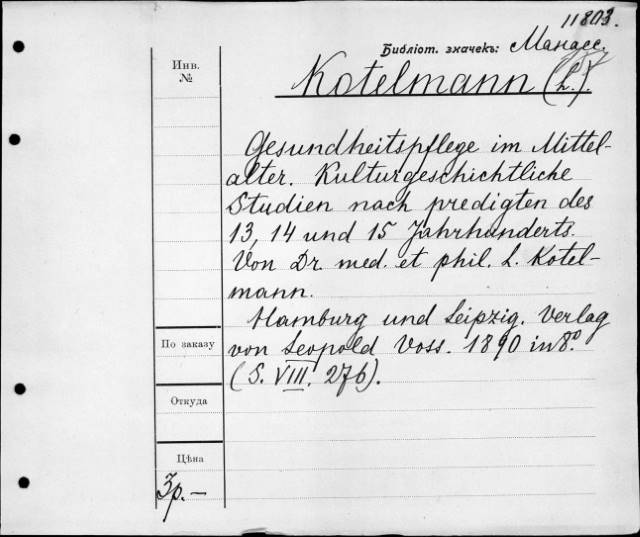 11803.
Библіот. значекъ: Манасс.
Инв.
№
Kotelmann (L.).
Gesundheitspflege im Mittel-
alter. Kulturgeschichtliche
Studien nach predigten des
13, 14 und 15 Jahrhunderts.
Von Dr. med. et phil. L. Kotel-
mann.
Hamburg und Leipzig. Verlag
von Leopold Voss. 1890 in 8º.
(S. VIII. 276).
По заказу
Откуда
Цѣна
3р.—